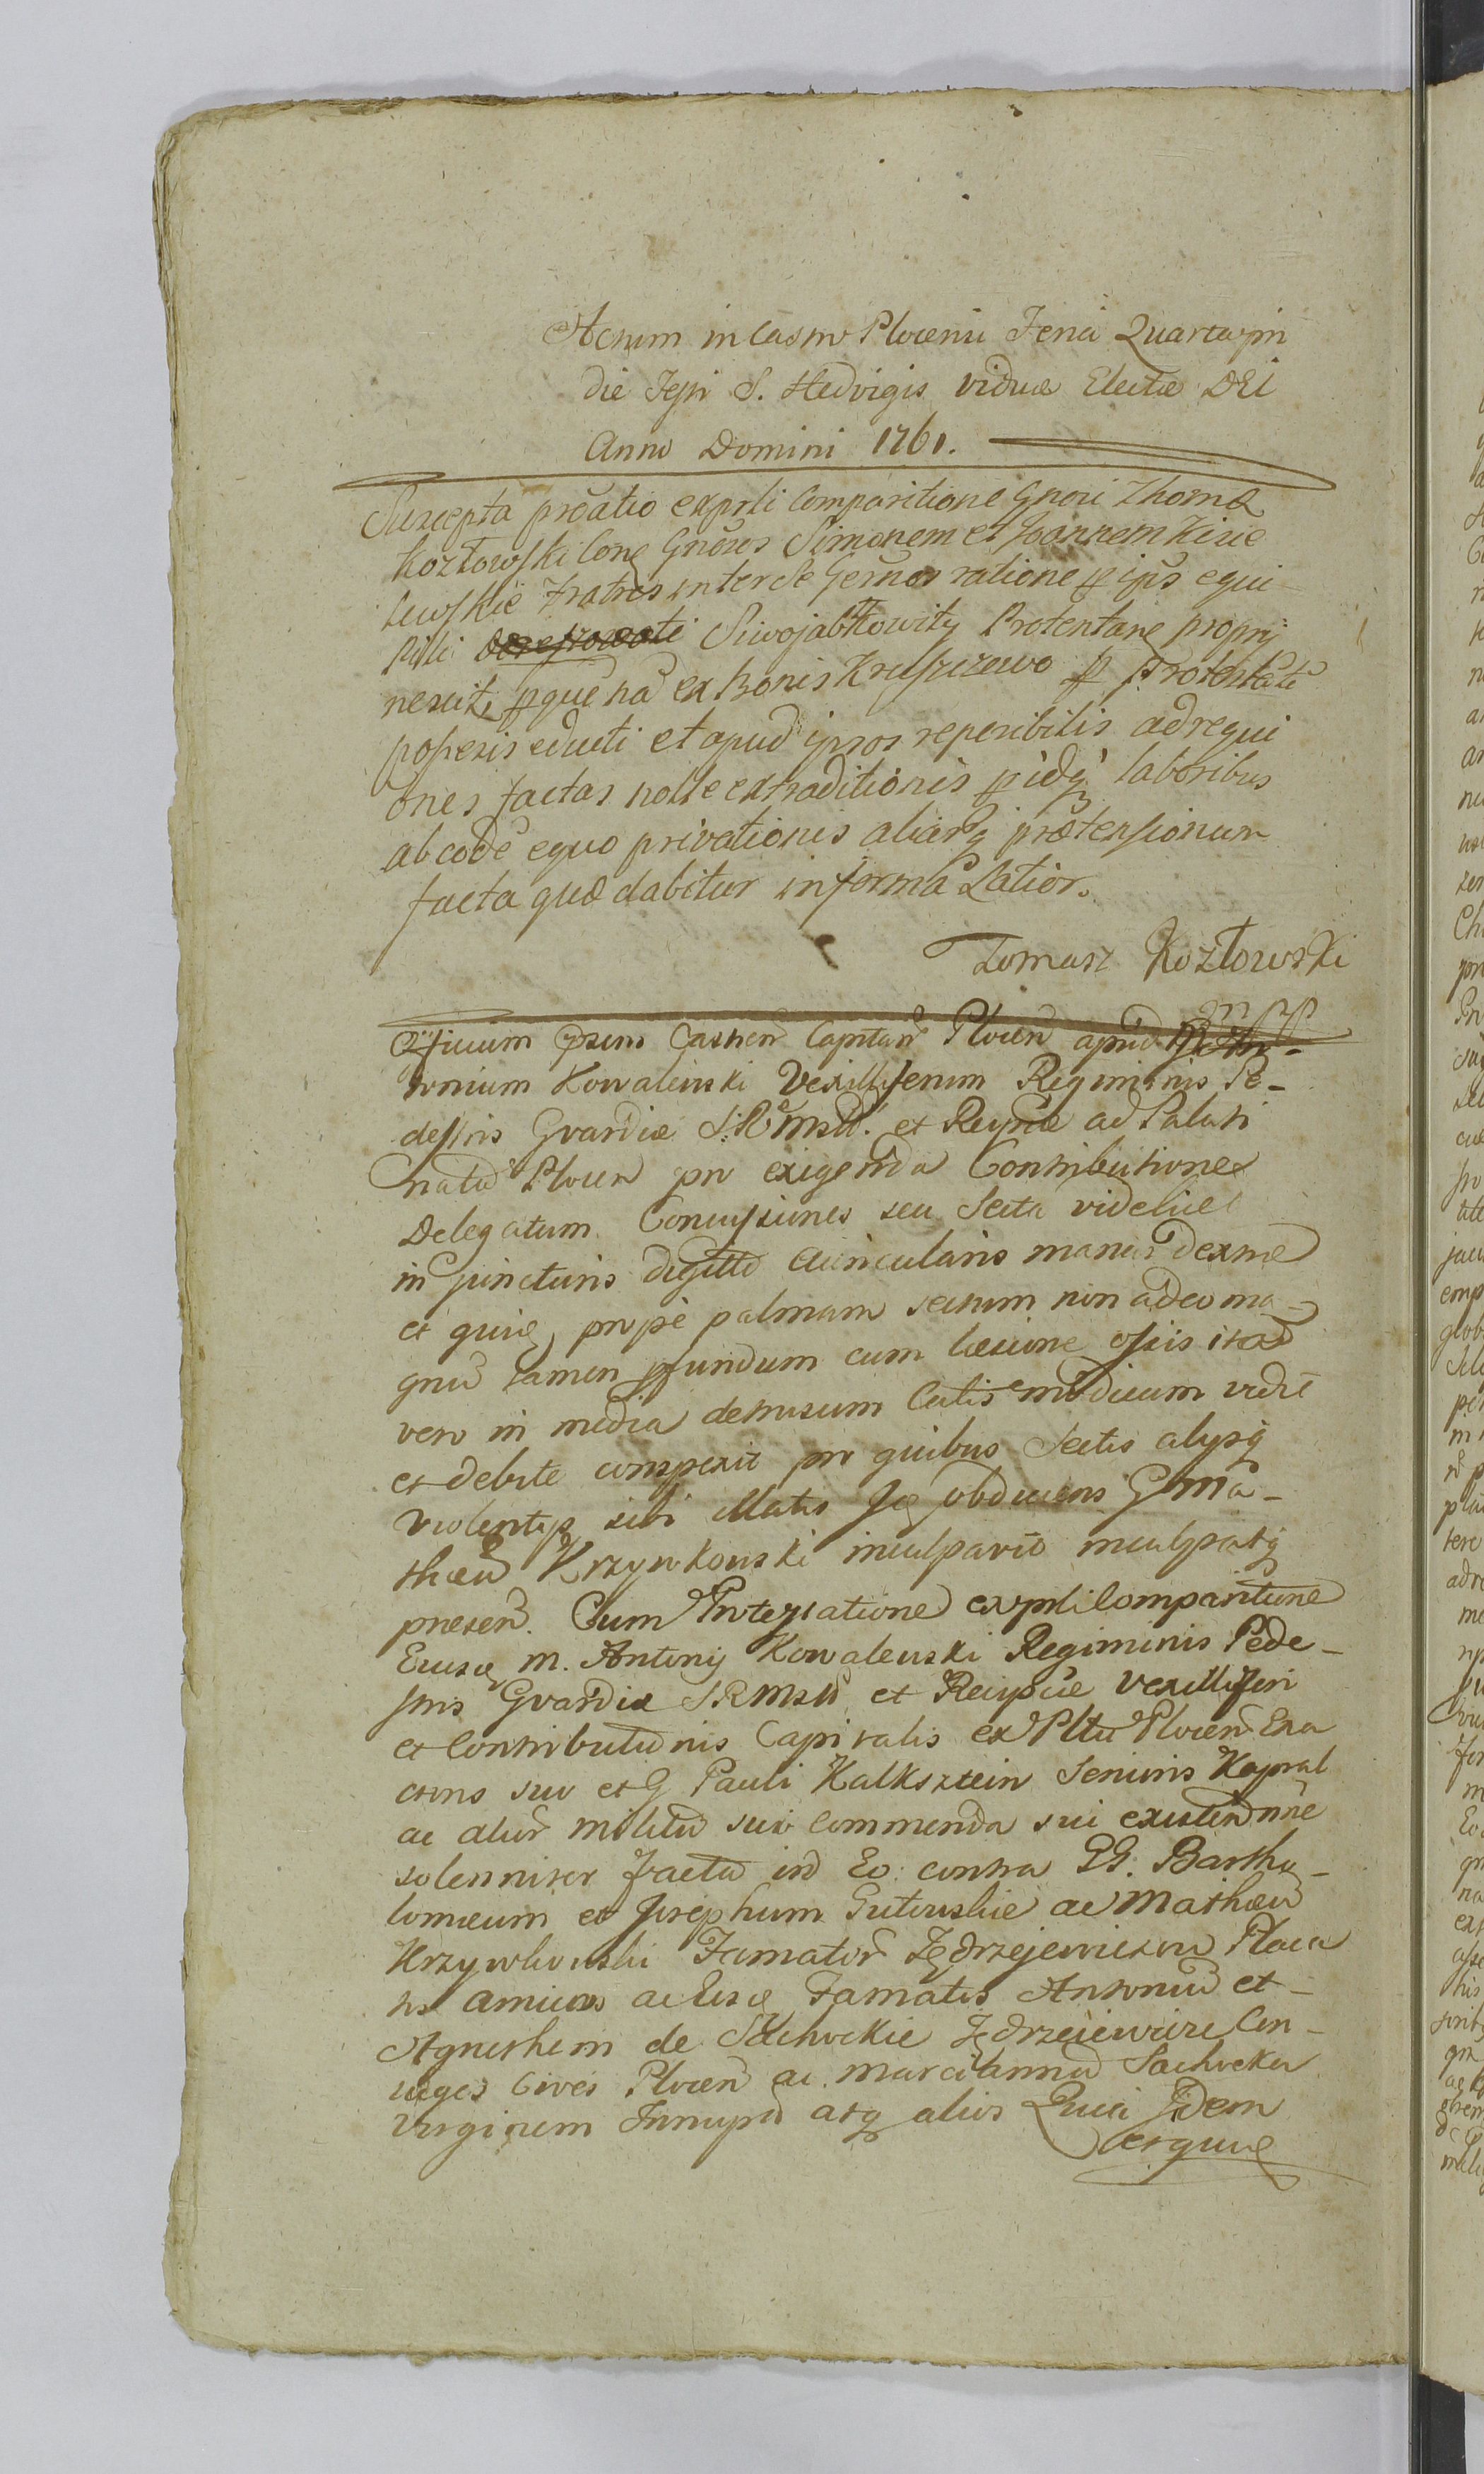 Actum in Castro Plocensi Feria Quarta pri
die Festi S. Hedvigis viduæ Electæ DEI
Anno Domini 1761.
Suscepta prõatio ex prsti Comparitione Gnosi Thomæ
Kozłowski Cone Gnõsos Simonem et Joannem Kisie
lewskie Fratres inter se Germos ratione p ipõs equi
Pilli Siwojabłkowity Protentane proprij
nexcit pque hã ex Bonis Kruszczewo p Protestãte
possessis educti et apud ipsos reperibilis ad requi
ones factas nolle extraditionis p idq laboribus
ab eodẽ equo privationis aliarq prætensionum
facta quæ dabitur in forma Latior.
Tomasz Kozłowski
Officium prsens Castren Capitan Plocen apud
tonium Kowalewski Vexilliferum Regiminis Pe-
destris Gvardiæ S.R. Mstt. et Reipcæ ad Palati
natũ Plocen pro exigenda Contributione
Delegatum Concussiones seu Secta videlicet
in juncturis digitto auricularis manus dextræ
et quine prope palmam sectum non adeo ma-
gnũ tamen pfundum cum læsione ossis item
vero in media detrusum Cutis modicum vidit
et debite conspexit pro quibus Sectis alijsq
violentijs sibi illatis Se obducens G Ma-
thæũ Krzywkowski inculpavit inculpatq
presen. Cum Protestatione ex prsti Comparitione
Eiusd M. Antonij Kowalewski Regiminis Pede-
stris Gvardiæ S.R.Mstt et Reipcæ Vexilliferi
et Contributionis Capitalis ex Pltu Plocen Exa
ctoris suo et G Pauli Kalksztein Senioris Kapral
ac alior militũ sub Commenda sui existen nnẽ
solenniter facta in Eo: contra GG. Bartho-
lomæum et Josephum Gutowskie ac Mathæũ
Krzywkowski Famator Jędrzejewiczow Placa
tos amicos ac Eusd Famatos Antoniũ et
Agnethem de Sachockie Jędrzeiewicze Con-
iuges Cives Plocen ac Mariannã Sachocka
Virginem Innuptã atq alios Quia Idem
Ietquine